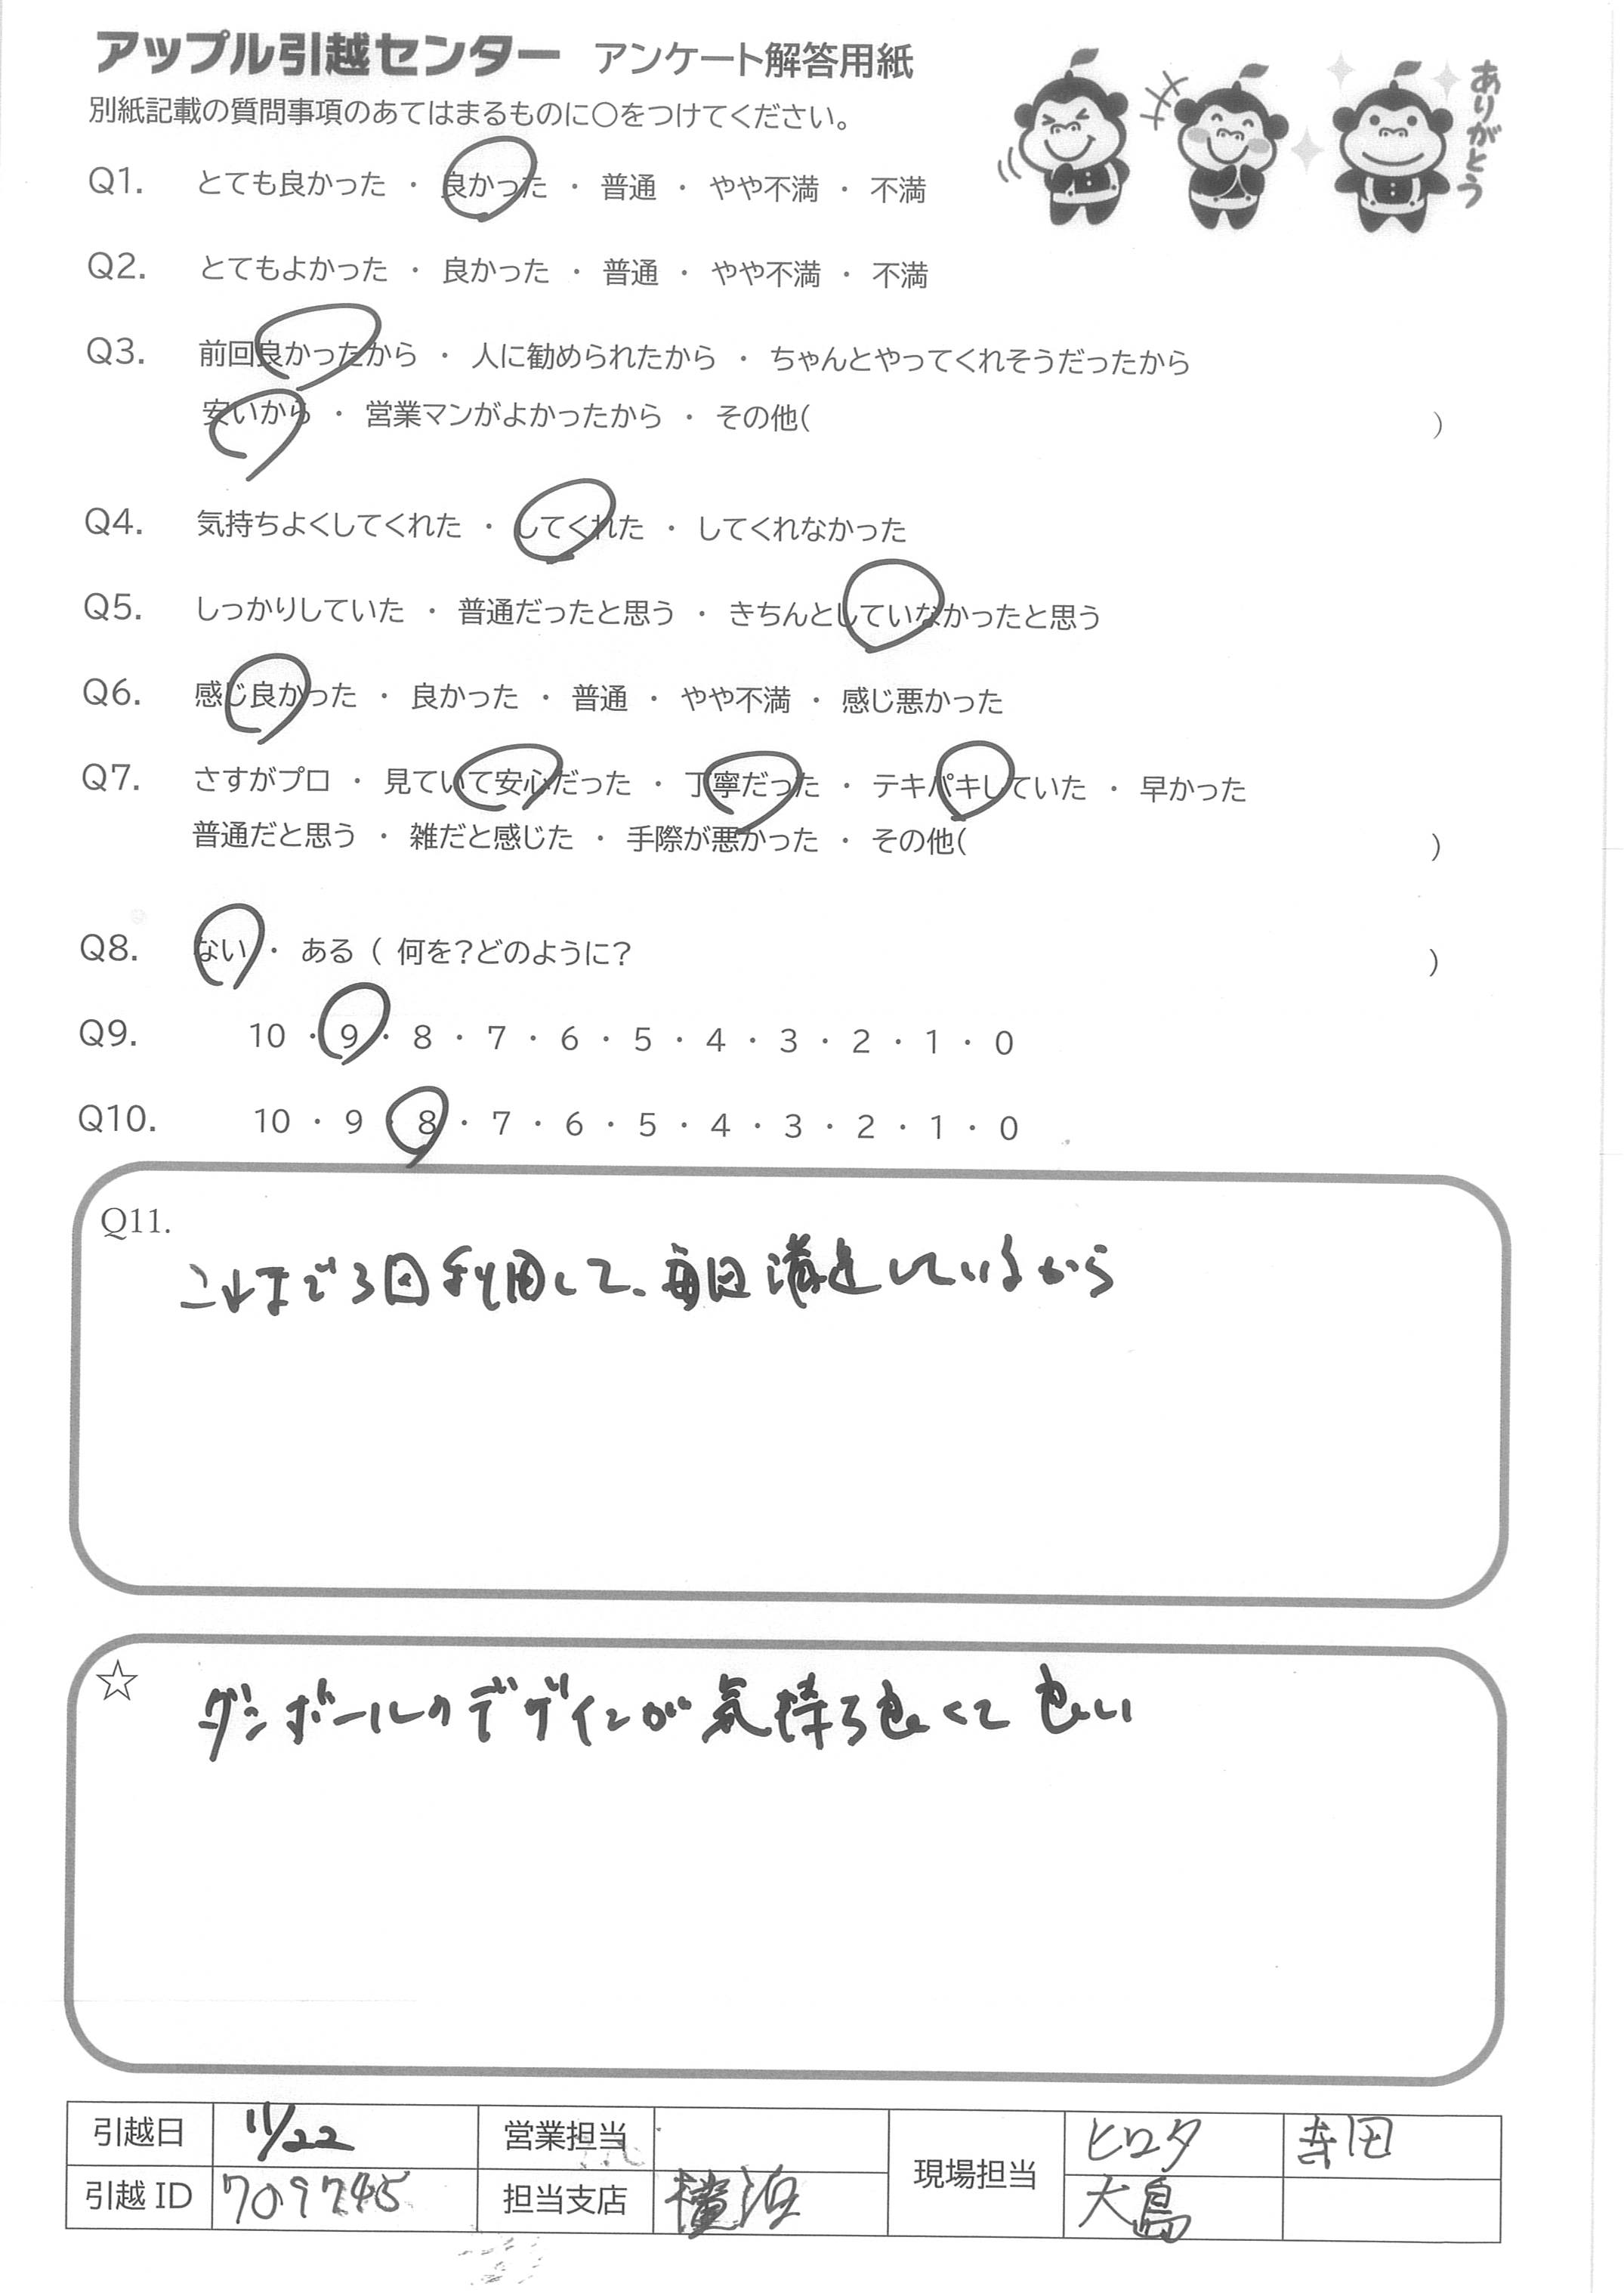 アップル引越センター アンケート解答用紙
ありがとう
別紙記載の質問事項のあてはまるものに○をつけてください。
Q1. とても良かった ・ 良かった ・ 普通 ・ やや不満 ・ 不満
Q2. とてもよかった ・ 良かった ・ 普通 ・ やや不満 ・ 不満
Q3. 前回良かったから ・ 人に勧められたから ・ ちゃんとやってくれそうだったから
安いから ・ 営業マンがよかったから ・ その他( )
Q4. 気持ちよくしてくれた ・ してくれた ・ してくれなかった
Q5. しっかりしていた ・ 普通だったと思う ・ きちんとしていなかったと思う
Q6. 感じ良かった ・ 良かった ・ 普通 ・ やや不満 ・ 感じ悪かった
Q7. さすがプロ ・ 見ていて安心だった ・ 丁寧だった ・ テキパキしていた ・ 早かった
普通だと思う ・ 雑だと感じた ・ 手際が悪かった ・ その他( )
Q8. ない ・ ある ( 何を?どのように? )
Q9. 10 ・ 9 ・ 8 ・ 7 ・ 6 ・ 5 ・ 4 ・ 3 ・ 2 ・ 1 ・ 0
Q10. 10 ・ 9 ・ 8 ・ 7 ・ 6 ・ 5 ・ 4 ・ 3 ・ 2 ・ 1 ・ 0
Q11.
これまで3回利用して、毎回満足しているから
☆
ダンボールのデザインが気持ち良くて良い
引越日 11/22 営業担当 現場担当 ヒロタ 寺田
引越 ID 709745 担当支店 横浜 大島